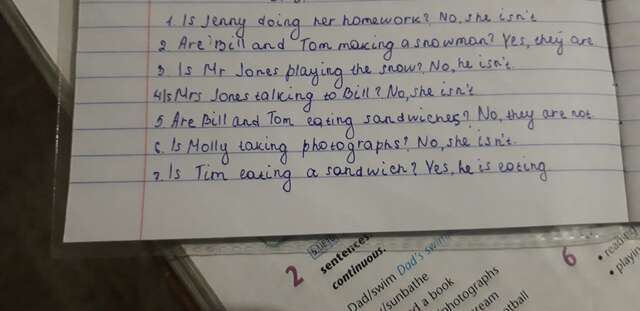 1. Is Jenny doing her homework? No, she isn't
2. Are Bill and Tom making a snowman? Yes, they are
3. Is Mr Jones playing the snow? No, he isn't.
4 Is Mrs Jones talking to Bill? No, she isn't
5. Are Bill and Tom eating sandwiches? No, they are not.
6. Is Molly taking photographs? No, she isn't.
7. Is Tim eating a sandwich? Yes, he is eating
2
sentences.
continuous.
Dad/swim Dad's swim
/sunbathe
d a book
photographs
ream
otball
6
• reading
• playin